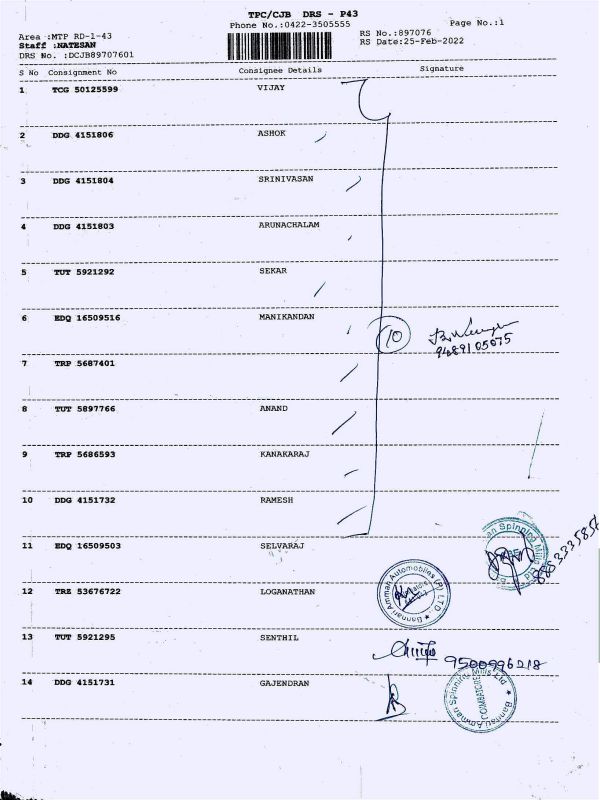 TPC/CJB DRS - P43
Phone No.:0422-3505555
Page No.:1
Area :MTP RD-1-43
RS No.:897076
Staff :NATESAN
RS Date:25-Feb-2022
DRS No. :DCJB89707601
S No Consignment No Consignee Details Signature
1 TCG 50125599 VIJAY
2 DDG 4151806 ASHOK
3 DDG 4151804 SRINIVASAN
4 DDG 4151803 ARUNACHALAM
5 TUT 5921292 SEKAR
6 EDQ 16509516 MANIKANDAN
10
9489105075
7 TRP 5687401
8 TUT 5897766 ANAND
9 TRP 5686593 KANAKARAJ
10 DDG 4151732 RAMESH
11 EDQ 16509503 SELVARAJ
12 TRE 53676722 LOGANATHAN
Bannari Amman Automobiles (P) LTD.
13 TUT 5921295 SENTHIL
9500996218
14 DDG 4151731 GAJENDRAN
Bannari Amman Spinning Mills Ltd
COIMBATORE